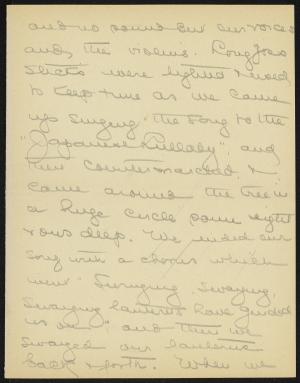 and no sound but our voices
and, the violins. Long Joss
Sticks were lighted & used
to keep time as we came
up singing the song to the
"Japanese Lullaby", and
then countermarched &
came around the tree in
a huge circle some eight
rows deep. We ended our
song with a chorus which
went "Swinging, Swaying,
Swaying lanterns have guided
us on" and then we
swayed our lanterns
back & forth. When we